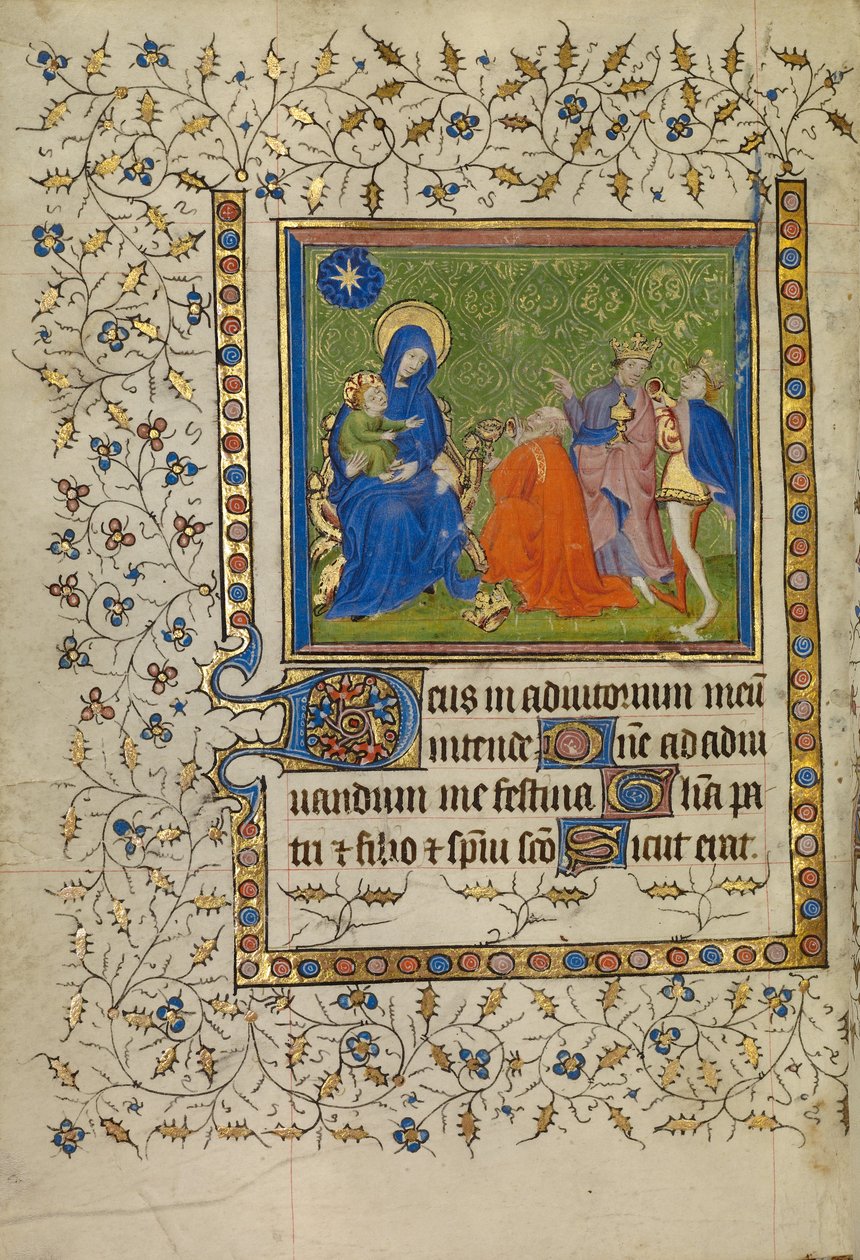 Deus in adiutorium meū
intende Dñe ad adiu
uandum me festina Glīa pa
tri ⁊ filio ⁊ sp̄iu scō Sicut erat.